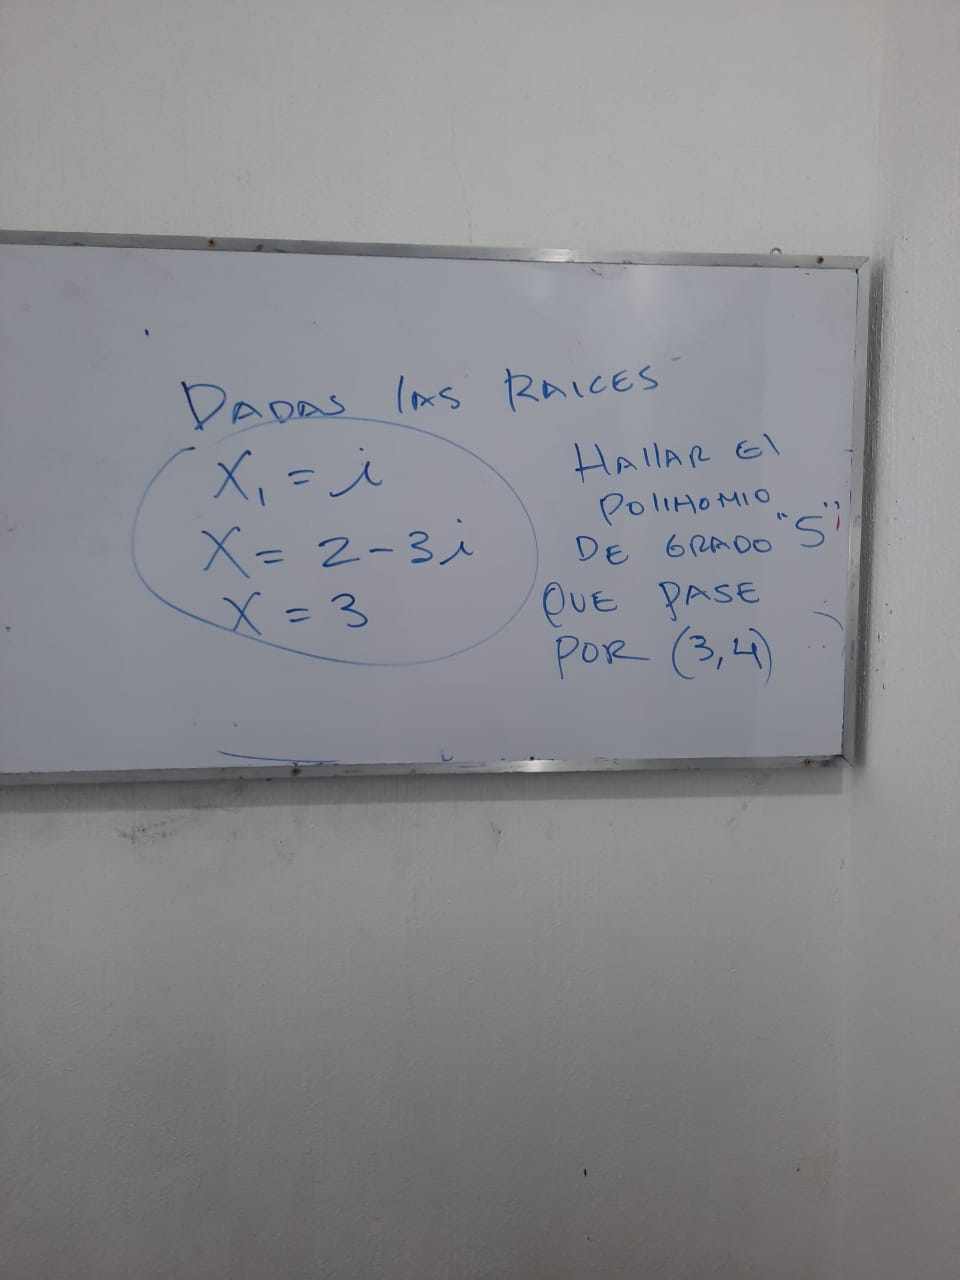 DADAS lAS RAICES
X₁ = i
X = 2-3i
X = 3
HAllAR El
POlIHOMIO
DE GRADO "5"
QUE PASE
POR (3,4)